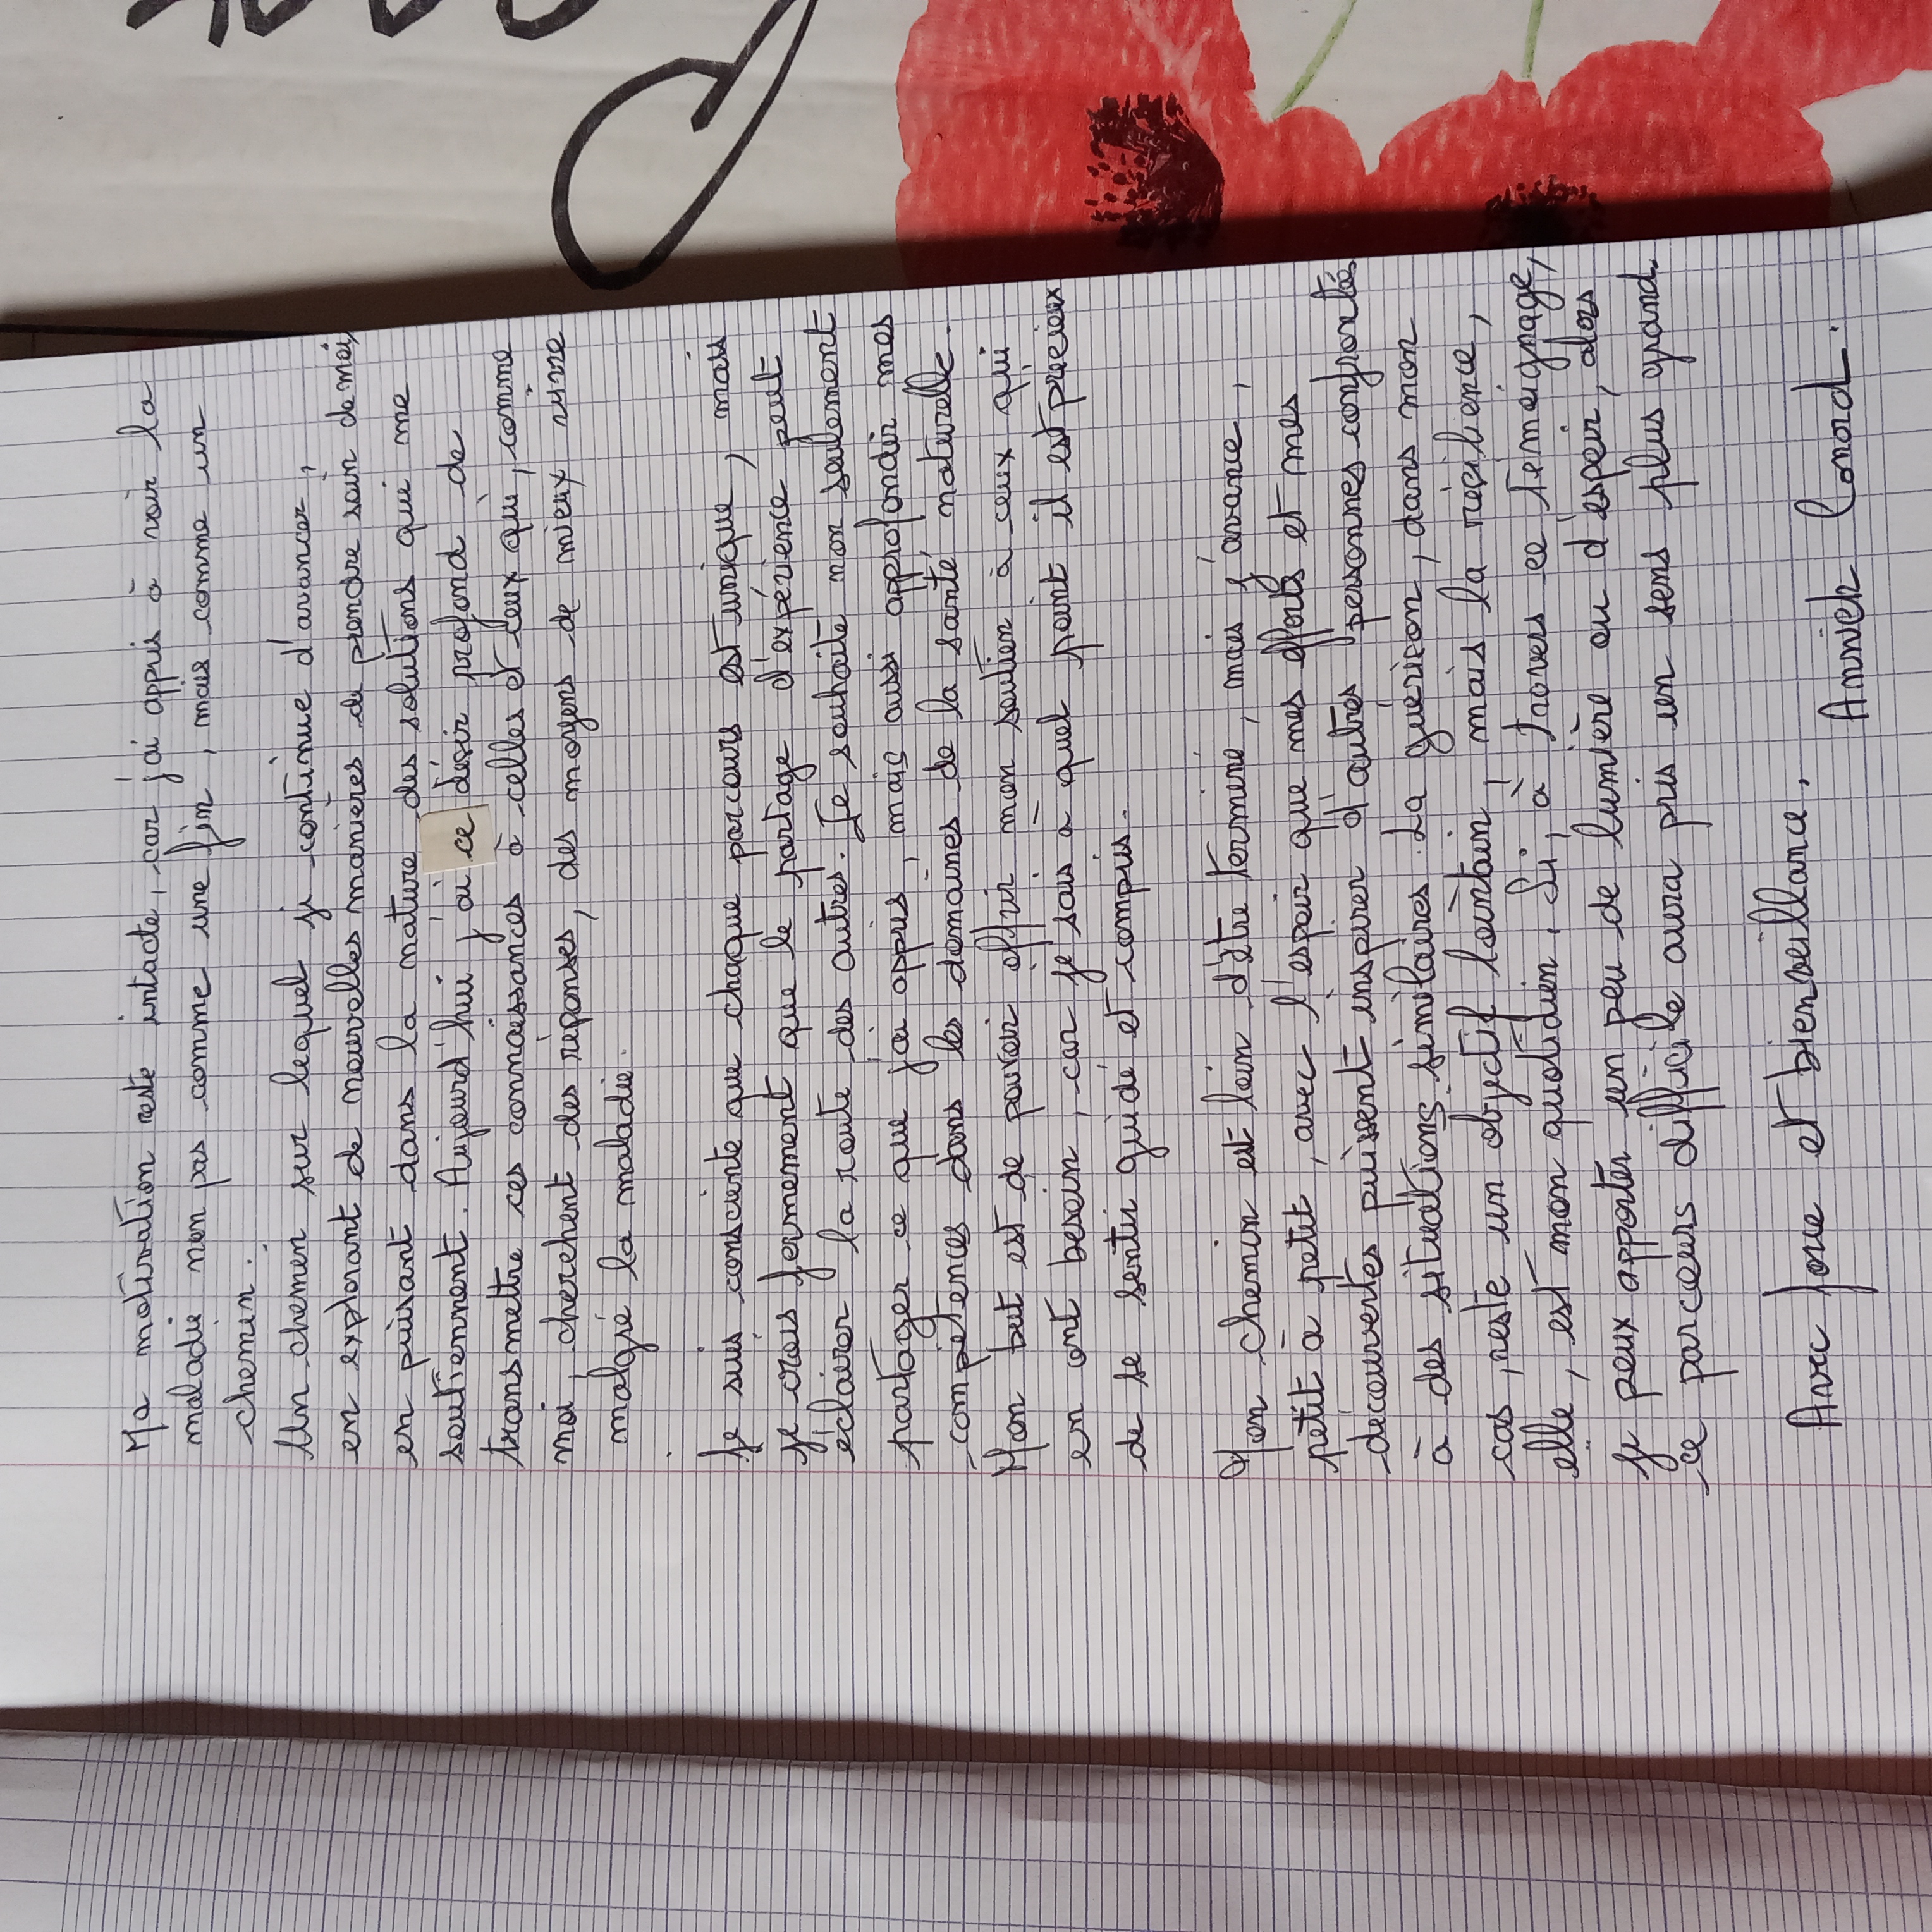 Ma motivation reste intacte, car j'ai appris à voir la
maladie non pas comme une fin, mais comme un
chemin.
Un chemin sur lequel je continue d'avancer,
en explorant de nouvelles manières de prendre soin de moi,
en puisant dans la nature des solutions qui me
soutiennent. Aujourd'hui j'ai ce désir profond de
transmettre ces connaissances à celles et ceux qui, comme
moi, cherchent des réponses, des moyens de mieux vivre
malgré la maladie.
Je suis consciente que chaque parcours est unique, mais
je crois fermement que le partage d'expérience peut
éclairer la route des autres. Je souhaite non seulement
partager ce que j'ai appris, mais aussi approfondir mes
compétences dans les domaines de la santé, naturelle.
Mon but est de pouvoir offrir mon soutien à ceux qui
en ont besoin, car je sais à quel point il est précieux
de se sentir guidé et compris.
Mon chemin est loin d'être terminé, mais j'avance,
petit à petit, avec l'espoir que mes efforts et mes
découvertes puissent inspirer d'autres personnes confrontés
à des situations similaires. La guérison, dans mon
cas, reste un objectif lointain, mais la résilience,
elle, est mon quotidien. Si, à travers ce témoignage,
je peux apporter un peu de lumière ou d'espoir, alors
ce parcours difficile aura pris un sens plus grand.
Avec force et bienveillance,
Annick Conord.